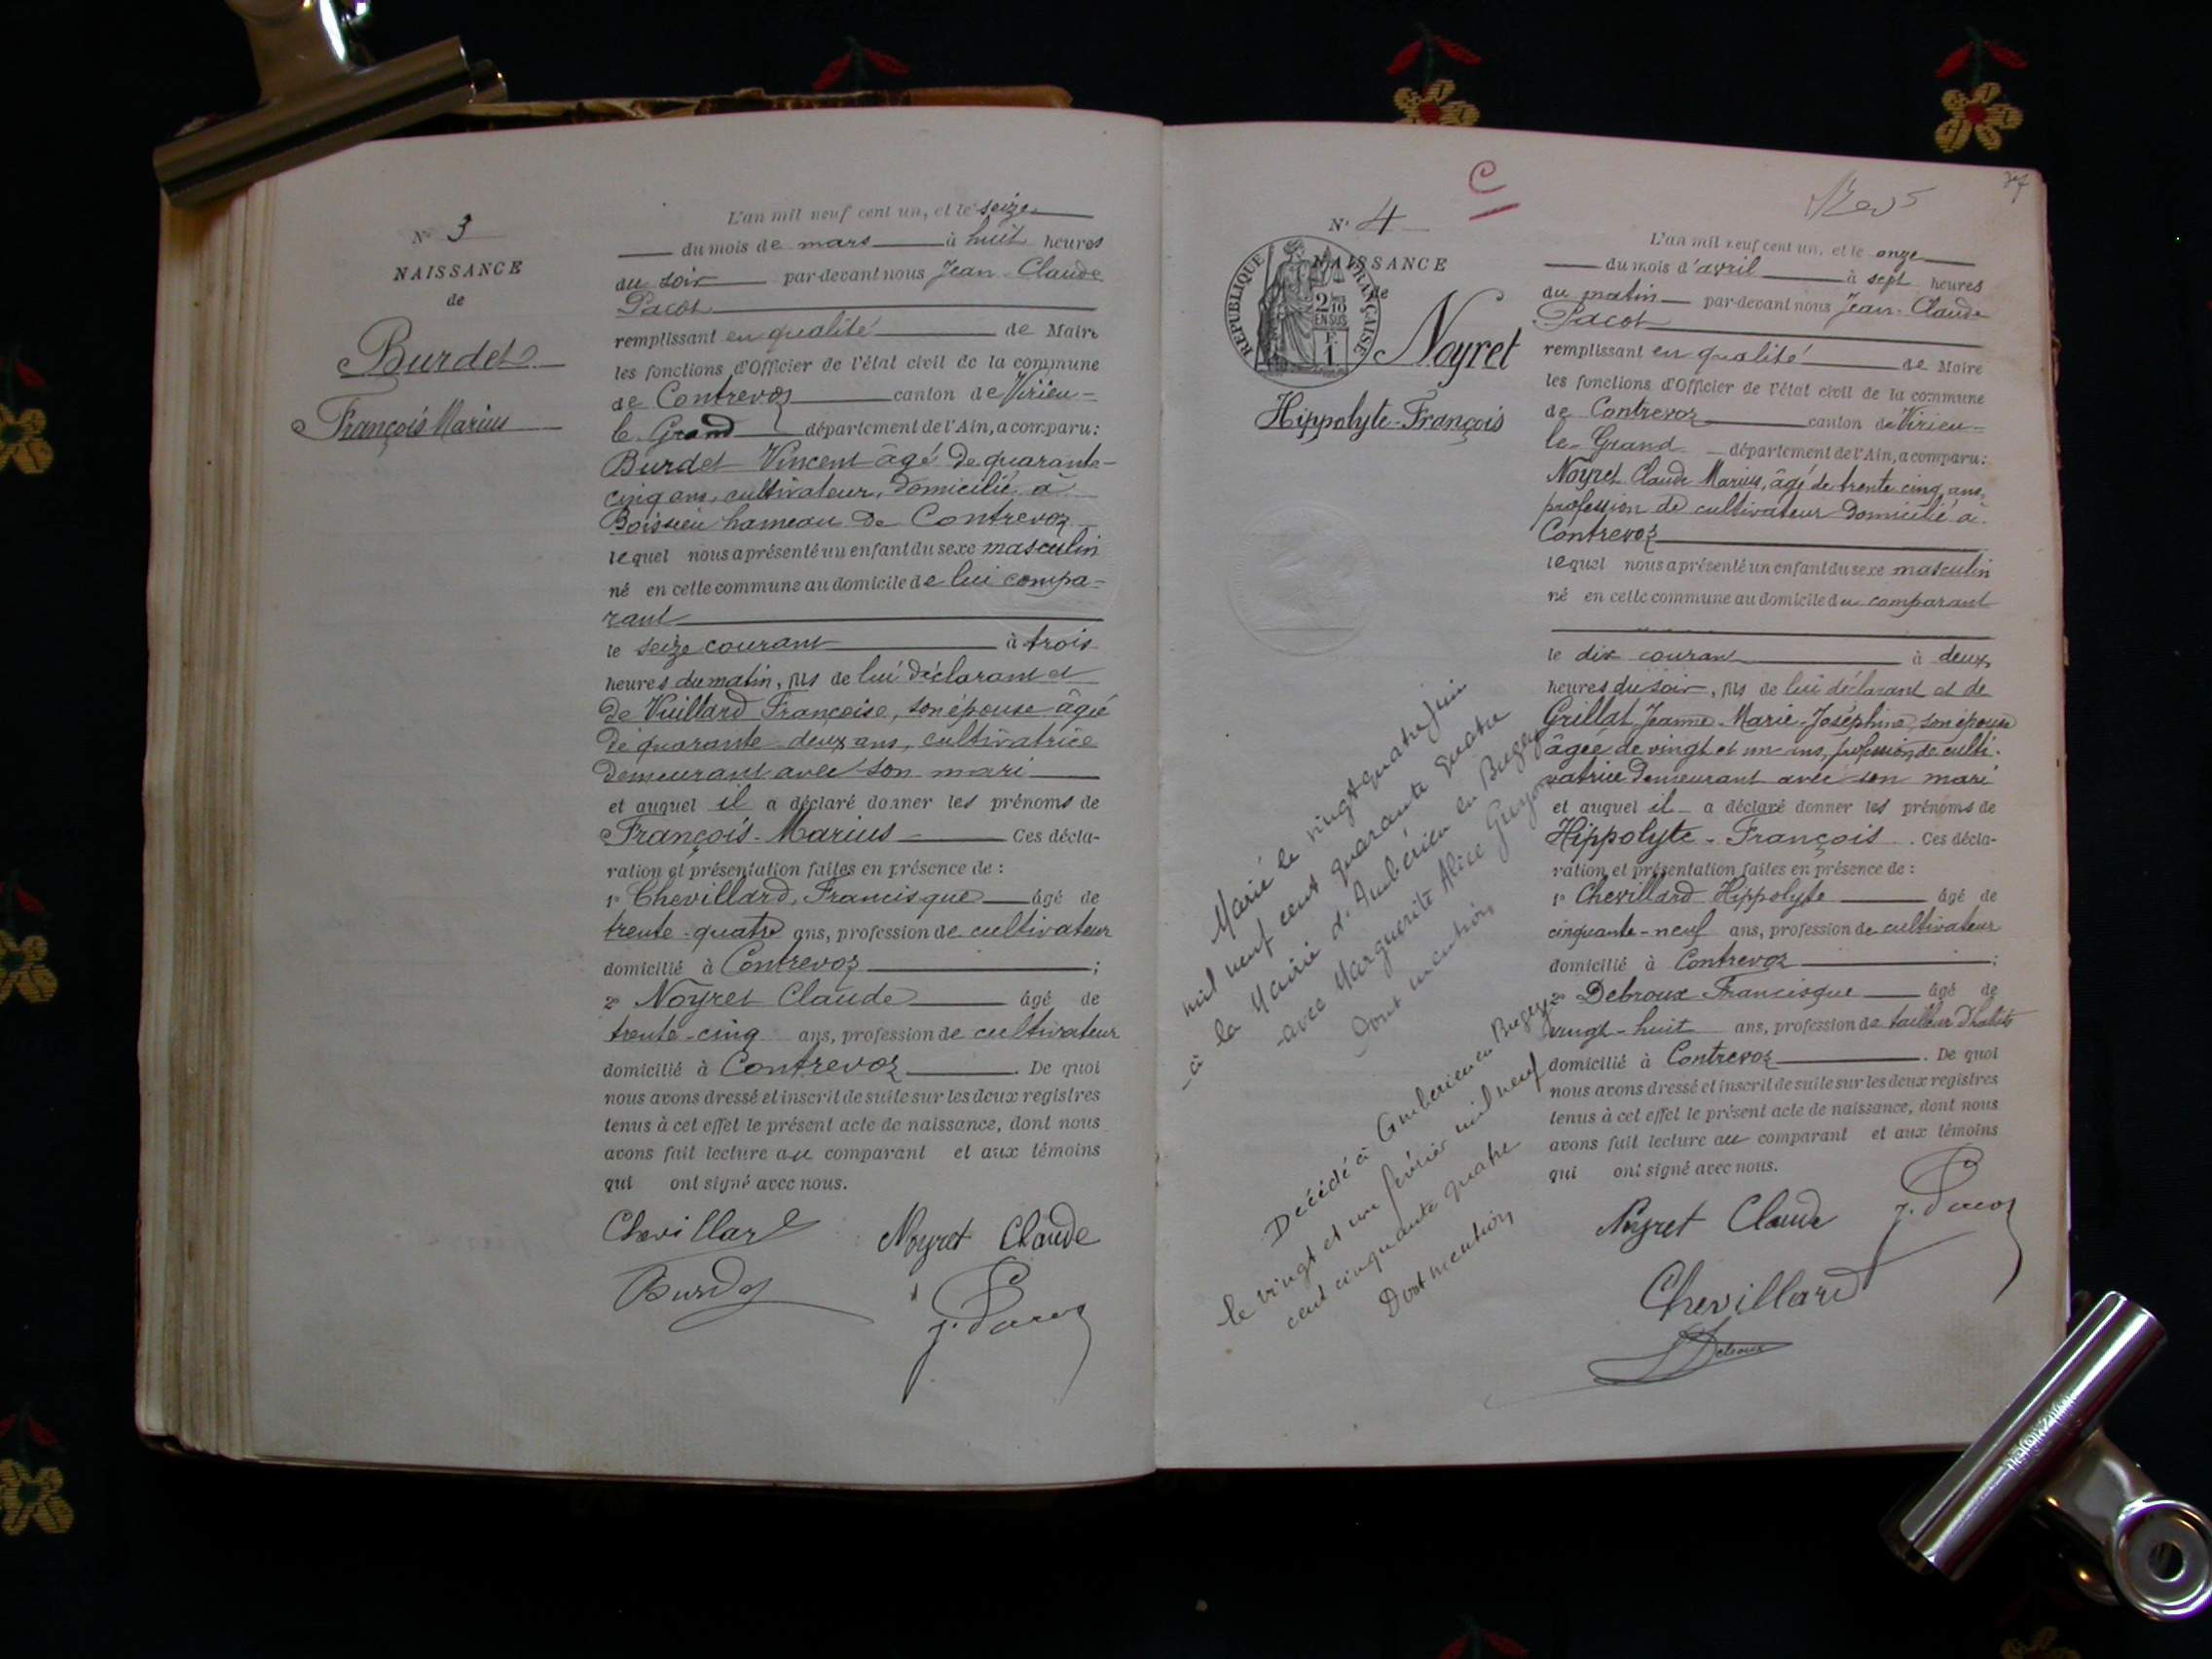 N° 3
NAISSANCE
de
Burdet
François Marius
L'an mil neuf cent un, et le seize
du mois de mars à huit heures
du soir par-devant nous Jean-Claude
Pacot
remplissant en qualité de Maire
les fonctions d'Officier de l'état civil de la commune
de Contrevoz canton de Virieu=
le Grand département de l'Ain, a comparu:
Burdet Vincent âgé de quarante-
cinq ans, cultivateur, domicilié à
Boissieu hameau de Contrevoz
lequel nous a présenté un enfant du sexe masculin
né en cette commune au domicile de lui compa=
rant
le seize courant à trois
heures du matin, fils de lui déclarant et
de Vuillard Françoise, son épouse âgée
de quarante-deux ans, cultivatrice
demeurant avec son mari
et auquel il a déclaré donner les prénoms de
François-Marius Ces décla-
ration et présentation faites en présence de :
1° Chevillard, Francisque âgé de
trente-quatre ans, profession de cultivateur
domicilié à Contrevoz ;
2° Noyret Claude âgé de
trente-cinq ans, profession de cultivateur
domicilié à Contrevoz . De quoi
nous avons dressé et inscrit de suite sur les deux registres
tenus à cet effet le présent acte de naissance, dont nous
avons fait lecture au comparant et aux témoins
qui ont signé avec nous.
Chevillard Noyret Claude
Burdet
J. Pacot
C
N° 4
NAISSANCE
de
RÉPUBLIQUE FRANÇAISE
2/10
EN SUS
F.
1
Noyret
Hippolyte-François
L'an mil neuf cent un, et le onze
du mois d'avril à sept heures
du matin par-devant nous Jean-Claude
Pacot
remplissant en qualité de Maire
les fonctions d'Officier de l'état civil de la commune
de Contrevoz canton de Virieu=
le-Grand département de l'Ain, a comparu:
Noyret Claude Marius, âgé de trente cinq ans,
profession de cultivateur domicilié à
Contrevoz
lequel nous a présenté un enfant du sexe masculin
né en cette commune au domicile du comparant
le dix courant à deux
heures du soir, fils de lui déclarant et de
Grillat Jeanne-Marie-Joséphine, son épouse
âgée de vingt et un ans, profession de culti-
vatrice demeurant avec son mari
et auquel il a déclaré donner les prénoms de
Hippolyte-François . Ces décla-
ration et présentation faites en présence de :
1° Chevillard Hippolyte âgé de
cinquante-neuf ans, profession de cultivateur
domicilié à Contrevoz ;
2° Debroux Francisque âgé de
vingt-huit ans, profession de tailleur d'habits
domicilié à Contrevoz . De quoi
nous avons dressé et inscrit de suite sur les deux registres
tenus à cet effet le présent acte de naissance, dont nous
avons fait lecture au comparant et aux témoins
qui ont signé avec nous.
Noyret Claude J. Pacot
Chevillard
Debroux
Marié le vingt quatre juin
mil neuf cent quarante quatre
à la Mairie d'Ambérieu en Bugey
avec Marguerite Alice Guyon
Dont mention
Décédé à Ambérieu en Bugey
le vingt et un février mil neuf
cent cinquante quatre
Dont mention